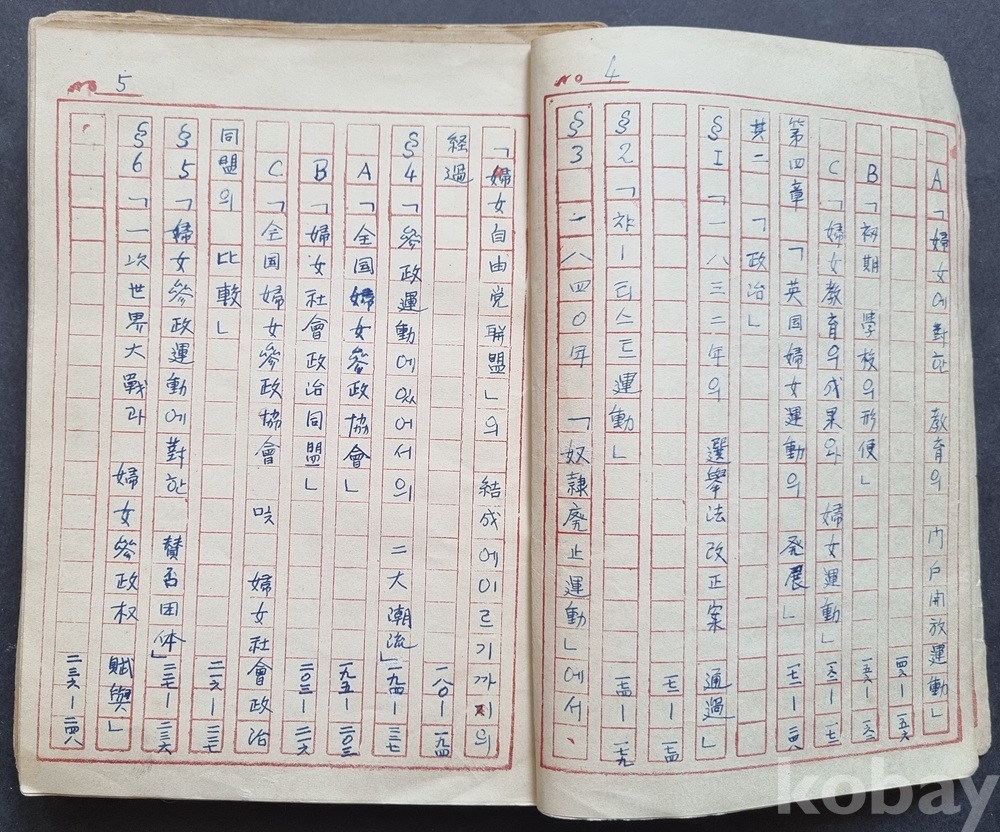 No 4
A「婦女에對한 敎育의 門戶開放運動」
一四六—一五六
B「初期 學校의形便」 一五六—一六二
C「婦女敎育의成果와 婦女運動」 一六二—一七二
第四章 「英国婦女運動의 発展」 一七二—二四八
其二「政治」
§I「一八三二年의 選擧法改正案 通過」
一七二—一七四
§2「챠ー티스트運動」 一七四—一七九
§3 一八四〇年 「奴隷廃止運動」에서
No 5
「婦女自由党聯盟」의 結成에이르기까지의
経過 一八〇—一九四
§4「參政運動에있어서의 二大潮流」 一九四—二三七
A「全国婦女參政協會」 一九五—二〇三
B「婦女社會政治同盟」 二〇三—二一六
C「全国婦女參政協會 및 婦女社會政治
同盟의 比較」 二一六—二三七
§5「婦女參政運動에對한 賛否団体」 二三七—二三六
§6「一次世界大戰과 婦女參政权 賦與」
二三六—二四八
kobay